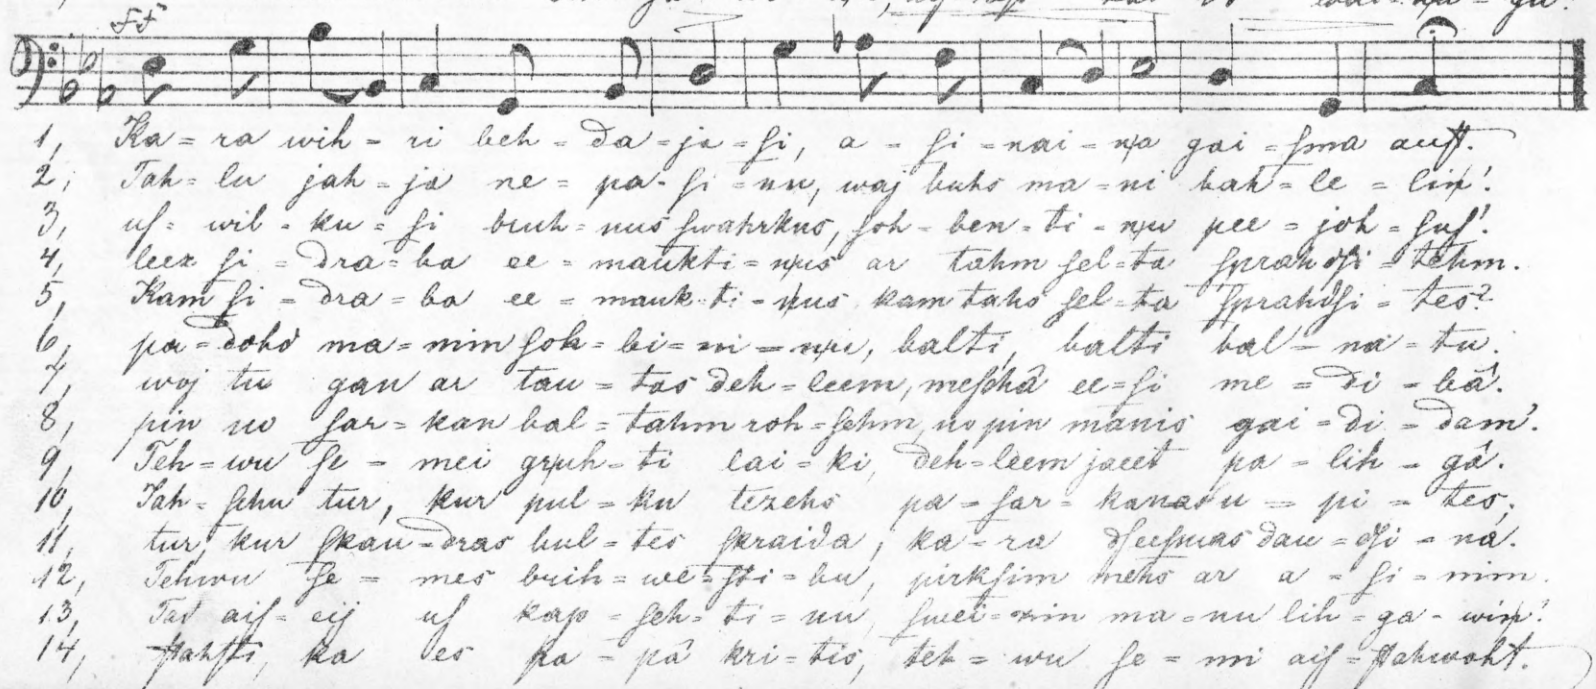 ff
1, Ka = ra wih = ri beh = da = ja = ſi, a = ſi = nai = ņa gai = ſma auſt.
2, Tah = lu jah = ja ne = pa = ſi = nu, waj buhs ma = ni bah = le = liņ!
3, uſ = wil = ku = ſi bruh = nus ſwahrkus, ſoh = ben = ti = ņu pee = joh = ſuſ!
4, leez ſi = dra = ba ee = maukti = ņus ar tahm ſel = ta ſprahdſi = tehm.
5, Kam ſi = dra = ba ee = mauk = ti = ņus kam tahs ſel = ta ſprahdſi = tes?
6, pa = dohd ma = nim ſoh = bi = ni = ņu, balti, balti bal = na = tu.
7, woj tu gan ar tau = tas deh = leem, meſchâ ee = ſi me = di = bâ.
8, pin no ſar = kan bal = tahm roh = ſehm, no pin manis gai = di = dam'.
9, Teh = wu ſe = mei gruh = ti lai = ki, deh = leem jaeet pa = lih = gâ.
10, Jah = ſchu tur, kur pul = ku tezehs pa = ſar = kanas u = pi = tes;
11, tur, kur ſkau = dras bul = tes ſkraida, ka = ra dſeeſmas dau = dſi = na.
12, Tehwu ſe = mes brih = we = ſti = bu, pirkſim mehs ar a = ſi = nim.
13, Tad aiſ = eij uſ kap = ſeh = ti = nu, ſwei = zin ma = nu lih = ga = wiņ!
14, ſtahſti, ka es ka = pâ kri = tis, teh = wu ſe = mi aiſ = ſtahwoht.